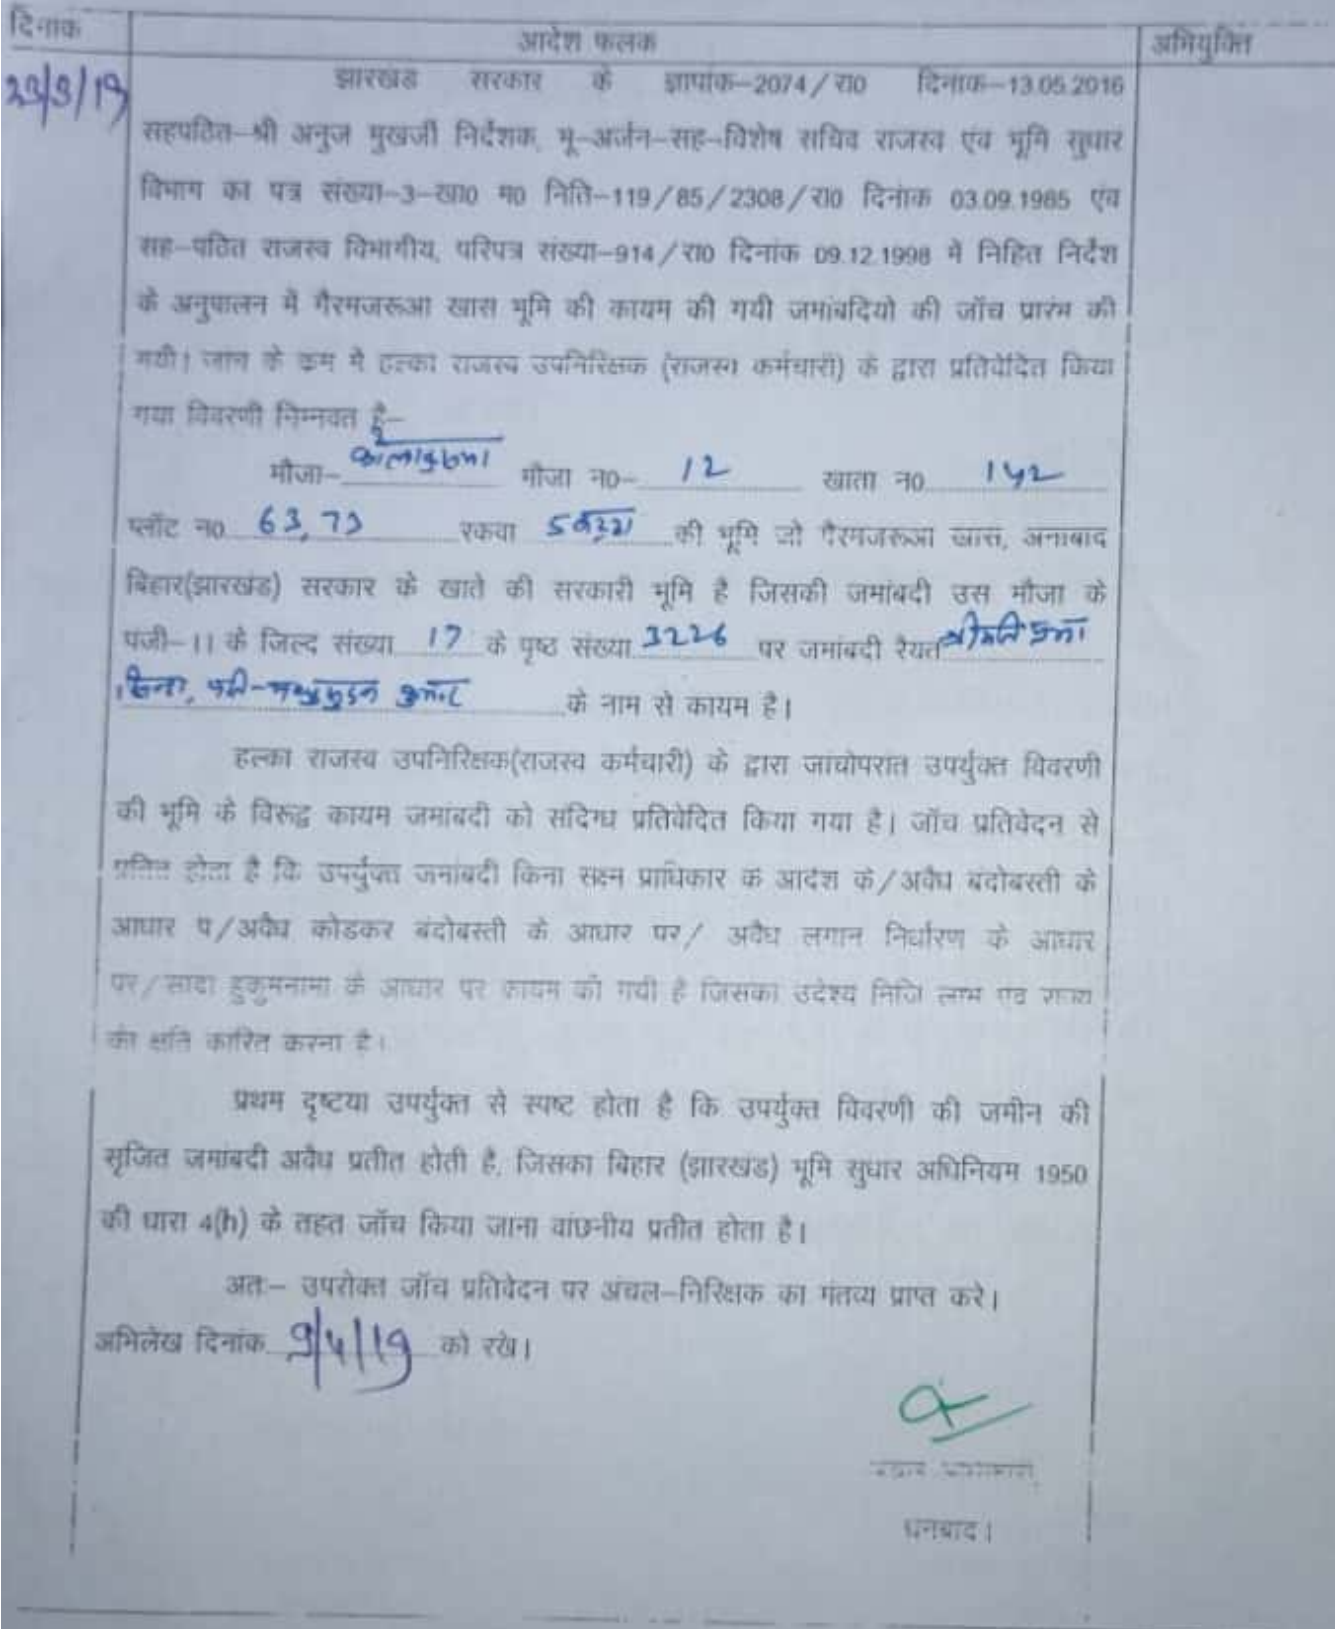 दिनांक आदेश फलक अभियुक्ति
23/3/19 झारखंड सरकार के ज्ञापांक-2074/रा0 दिनांक-13.05.2016
सहपठित-श्री अनुज मुखर्जी निर्देशक, भू-अर्जन-सह-विशेष सचिव राजस्व एंव भूमि सुधार
विभाग का पत्र संख्या-3-खा0 म0 निति-119/85/2308/रा0 दिनांक 03.09.1985 एंव
सह-पठित राजस्व विभागीय, परिपत्र संख्या-914/रा0 दिनांक 09.12.1998 में निहित निर्देश
के अनुपालन में गैरमजरूआ खास भूमि की कायम की गयी जमांबदियो की जॉच प्रारंभ की
गयी। जांच के क्रम में हल्का राजस्व उपनिरिक्षक (राजस्व कर्मचारी) के द्वारा प्रतिवेदित किया
गया विवरणी निम्नवत है-
मौजा- मौजा न0- 12 खाता न0 142
प्लॉट न0 63, 73 रकवा की भूमि जो गैरमजरूआ खास, अनाबाद
बिहार(झारखंड) सरकार के खाते की सरकारी भूमि है जिसकी जमांबदी उस मौजा के
पंजी-11 के जिल्द संख्या 17 के पृष्ठ संख्या 3226 पर जमांबदी रैयत
के नाम से कायम है।
हल्का राजस्व उपनिरिक्षक(राजस्व कर्मचारी) के द्वारा जांचोपरांत उपर्युक्त विवरणी
की भूमि के विरूद्ध कायम जमांबदी को संदिग्ध प्रतिवेदित किया गया है। जॉच प्रतिवेदन से
प्रतित होता है कि उपर्युक्त जमांबदी किना सक्ष्म प्राधिकार के आदेश के/अवैध बंदोबस्ती के
आधार प/अवैध कोडकर बंदोबस्ती के आधार पर/ अवैध लगान निर्धारण के आधार
पर/सादा हुकुमनामा के आधार पर कायम की गयी है जिसका उदेश्य निजि लाभ एंव राज्य
को क्षति कारित करना है।
प्रथम दृष्टया उपर्युक्त से स्पष्ट होता है कि उपर्युक्त विवरणी की जमीन की
सृजित जमांबदी अवैध प्रतीत होती है, जिसका बिहार (झारखंड) भूमि सुधार अधिनियम 1950
की धारा 4(h) के तहत जॉच किया जाना वांछनीय प्रतीत होता है।
अतः- उपरोक्त जॉच प्रतिवेदन पर अंचल-निरिक्षक का मंतव्य प्राप्त करे।
अभिलेख दिनांक 9/4/19 को रखे।
धनबाद।